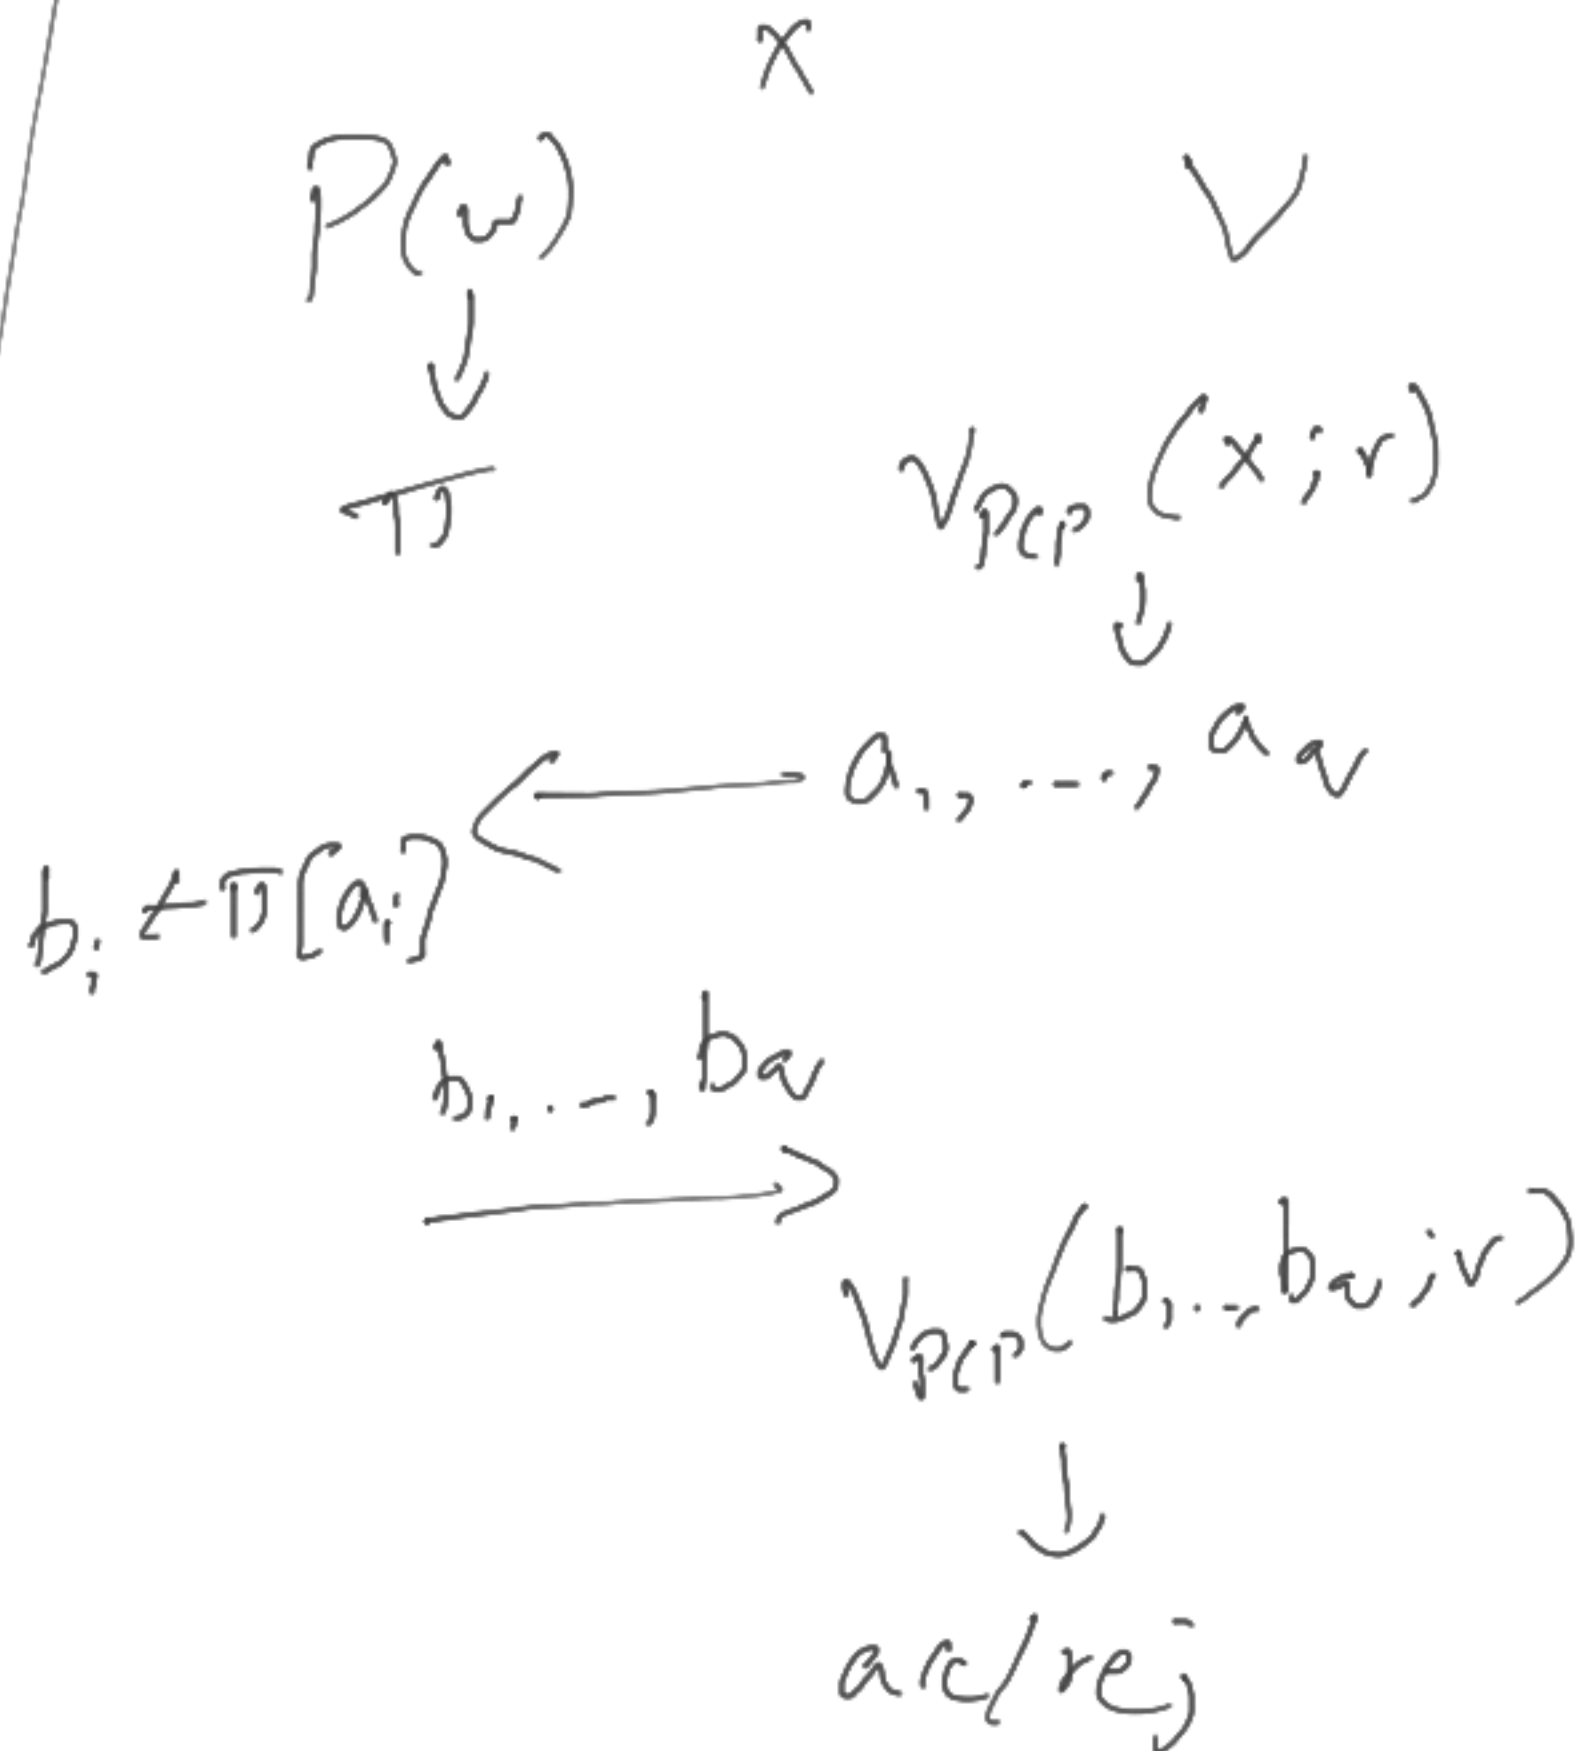 x
P(w) V
π V_PCP (x ; r)
a₁, ..., a_q
b_i ← π[a_i]
b₁, ..., b_q
V_PCP (b₁, .., b_q ; r)
acc/rej